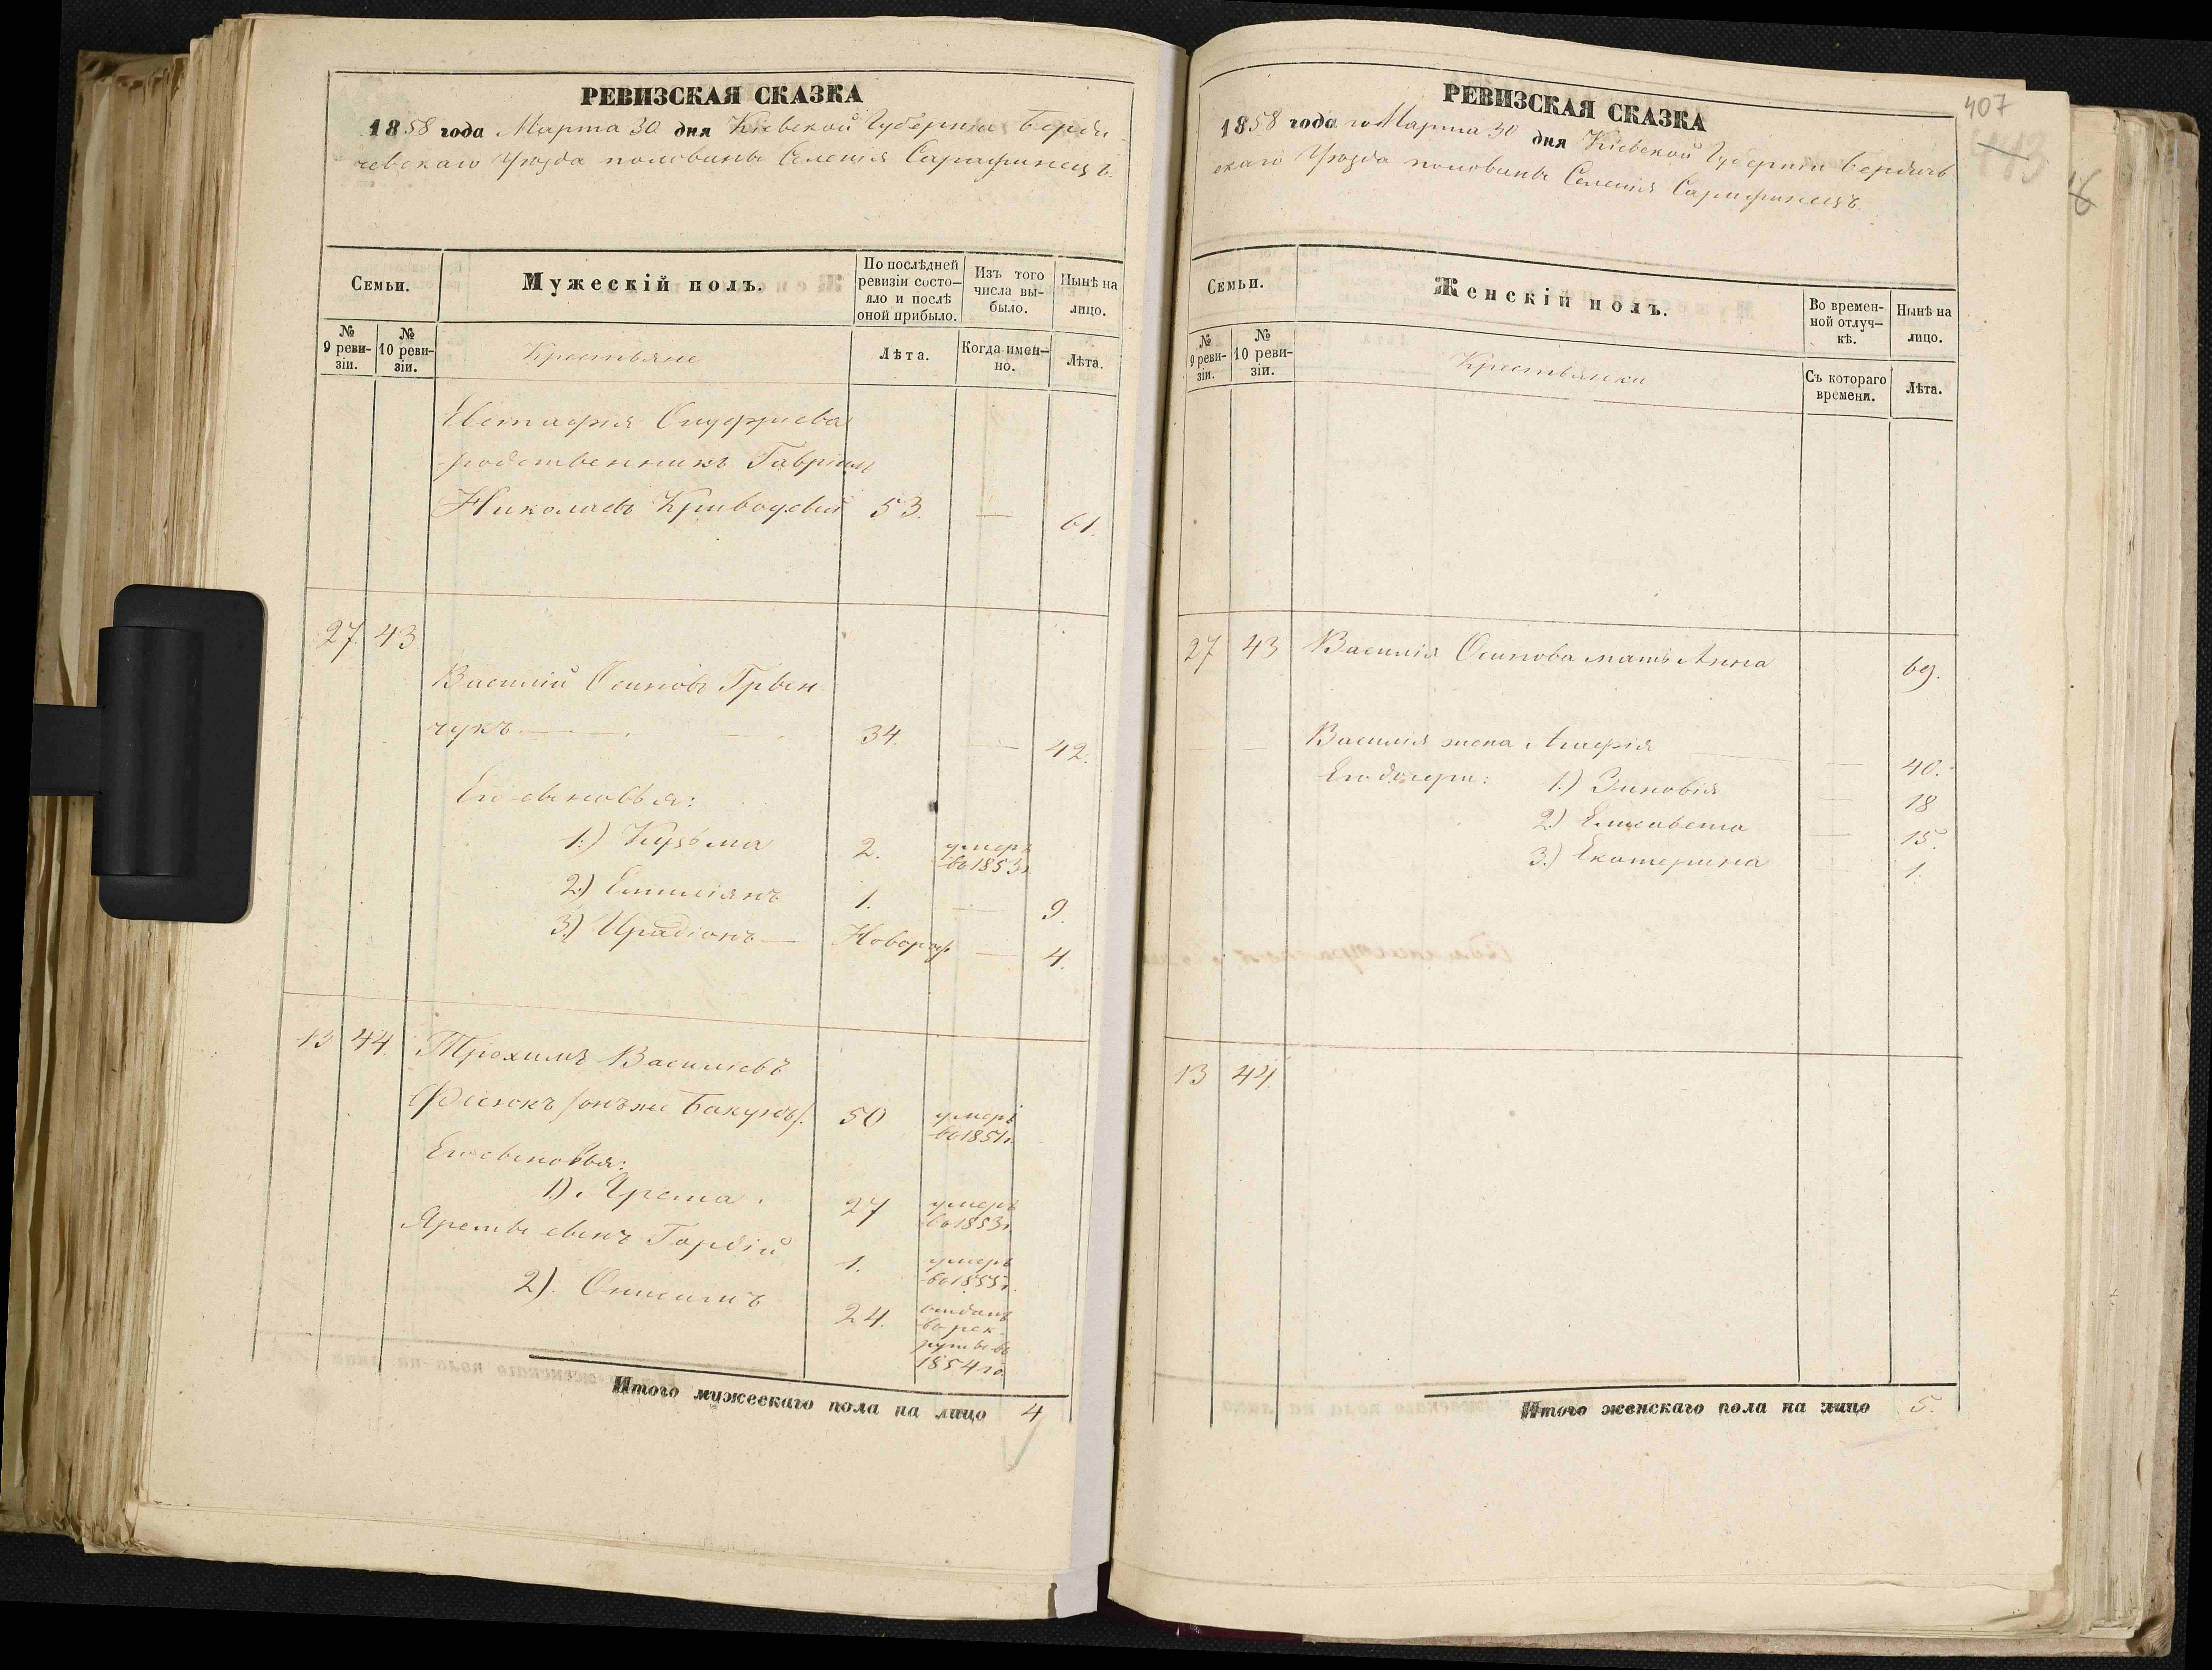 РЕВИЗСКАЯ СКАЗКА
1858 года Марта 30 дня Кіевской Губерніи Берди
чевскаго Уѣзда половины Селенія Сарафинецъ.
Семьи.
Мужескій полъ.
По послѣдней ревизіи состо-яло и послѣ оной прибыло.
Изъ того числа вы-было.
Нынѣ на лицо.
№ 9 реви-зіи.
№ 10 реви-зіи.
Крестьяне
Лѣта.
Когда имен-но.
Лѣта.
Евстафія Онуфріева
родственникъ Гавріил
Николаевъ 53. — 61.
27. 43
Василій Осиповъ Гръен
чукъ — 34. — 42.
Его сыновья:
1.) Кузьма 2. умеръ во 1853г.
2.) Емиліянъ 1. — 9.
3.) Ирадіонъ — Новорож — 4.
13 44. Трохимъ Василіевъ
Фесюкъ /онъ же Бакунъ/. 50 умеръ во 1851г.
Его сыновья:
1.) Ярема. 27 умеръ во 1853г.
Яремы сынъ Гордій 1. умеръ во 1855г.
2). Онисимъ 24. отданъ во рек-руты во 1854го
Итого мужескаго пола на лицо 4
РЕВИЗСКАЯ СКАЗКА
1858 года го Марта 30 дня Кіевской Губерніи Бердичв
скаго Уѣзда половины Селенія Сарафинецъ
407
Семьи.
Женскій полъ.
Во времен-ной отлуч-кѣ.
Нынѣ на лицо.
№ 9 реви-зіи.
№ 10 реви-зіи.
Крестьянки
Съ котораго времени.
Лѣта.
27 43 Василія Осипова мать Анна 69.
Василія жена Агафія — 40.
Его дочери: 1.) Зиновія — 18
2.) Елисавета — 15.
3.) Екатерина — 1.
13 44.
Итого женскаго пола на лицо 5.